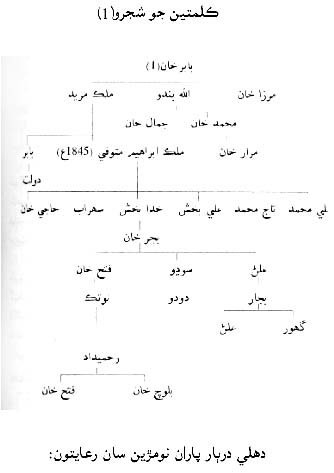 ڪلمتين جو شجرو(1)
بابر خان(1)
مرزا خان الله بندو ملڪ مريد
محمد خان جمال خان
مرار خان ملڪ ابراهيم متوفي (1845ع) بابر
دولت
علي محمد تاج محمد علي بخش خدا بخش سهراب حاجي خان
بجر خان
علڻ سوڍو فتح خان
بچار دودو بوتڪ
گهور علڻ
رحميداد
بلوچ خان فتح خان
دهلي دربار پاران نومڙين سان رعايتون: